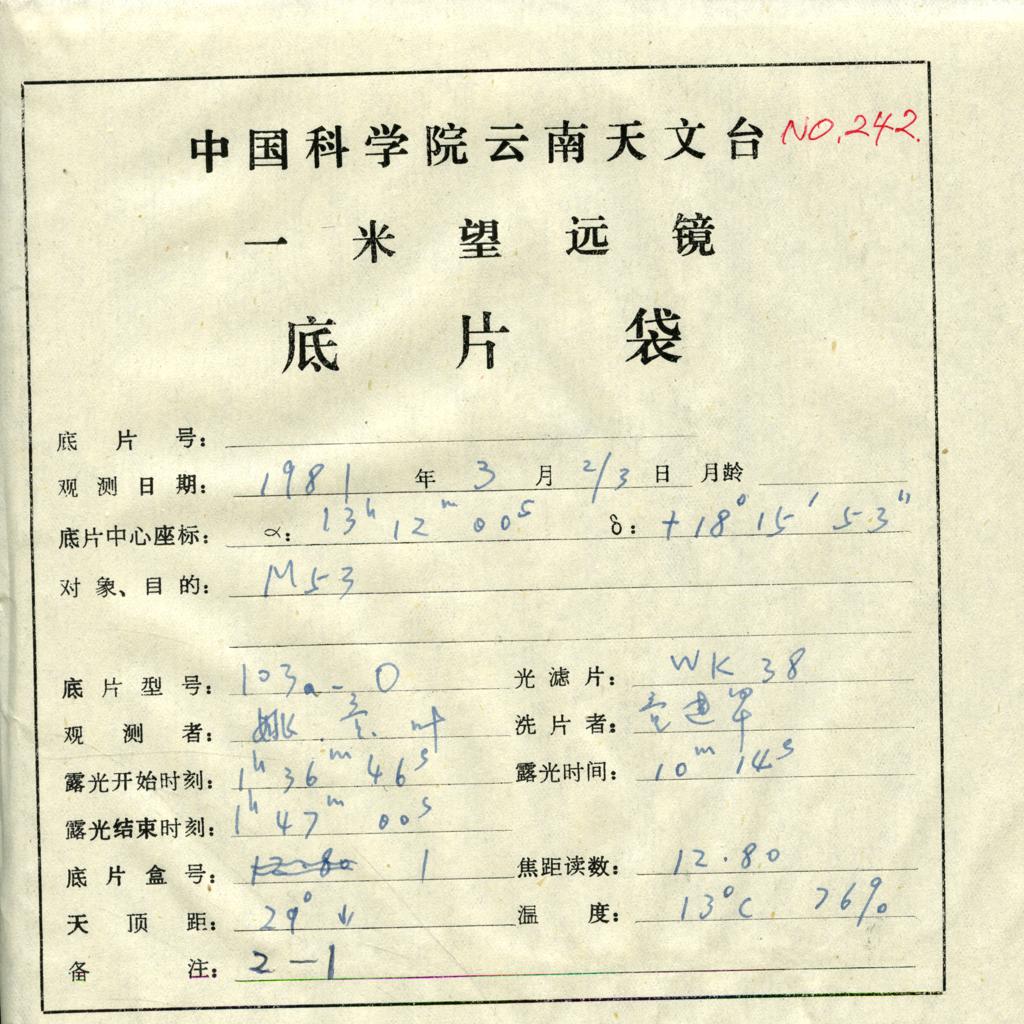 中国科学院云南天文台 NO.242.
一米望远镜
底片袋
底片号:
观测日期: 1981 年 3 月 2/3 日 月龄
底片中心座标: α: 13h 12m 00s δ: +18° 15′ 53″
对象、目的: M53
底片型号: 103a-O 光滤片: WK 38
观测者: 姚. 叶 洗片者:
露光开始时刻: 1h 36m 46s 露光时间: 10m 14s
露光结束时刻: 1h 47m 00s
底片盒号: 12.80 1 焦距读数: 12.80
天顶距: 29° ↓ 温度: 13°C 76%
备注: 2-1